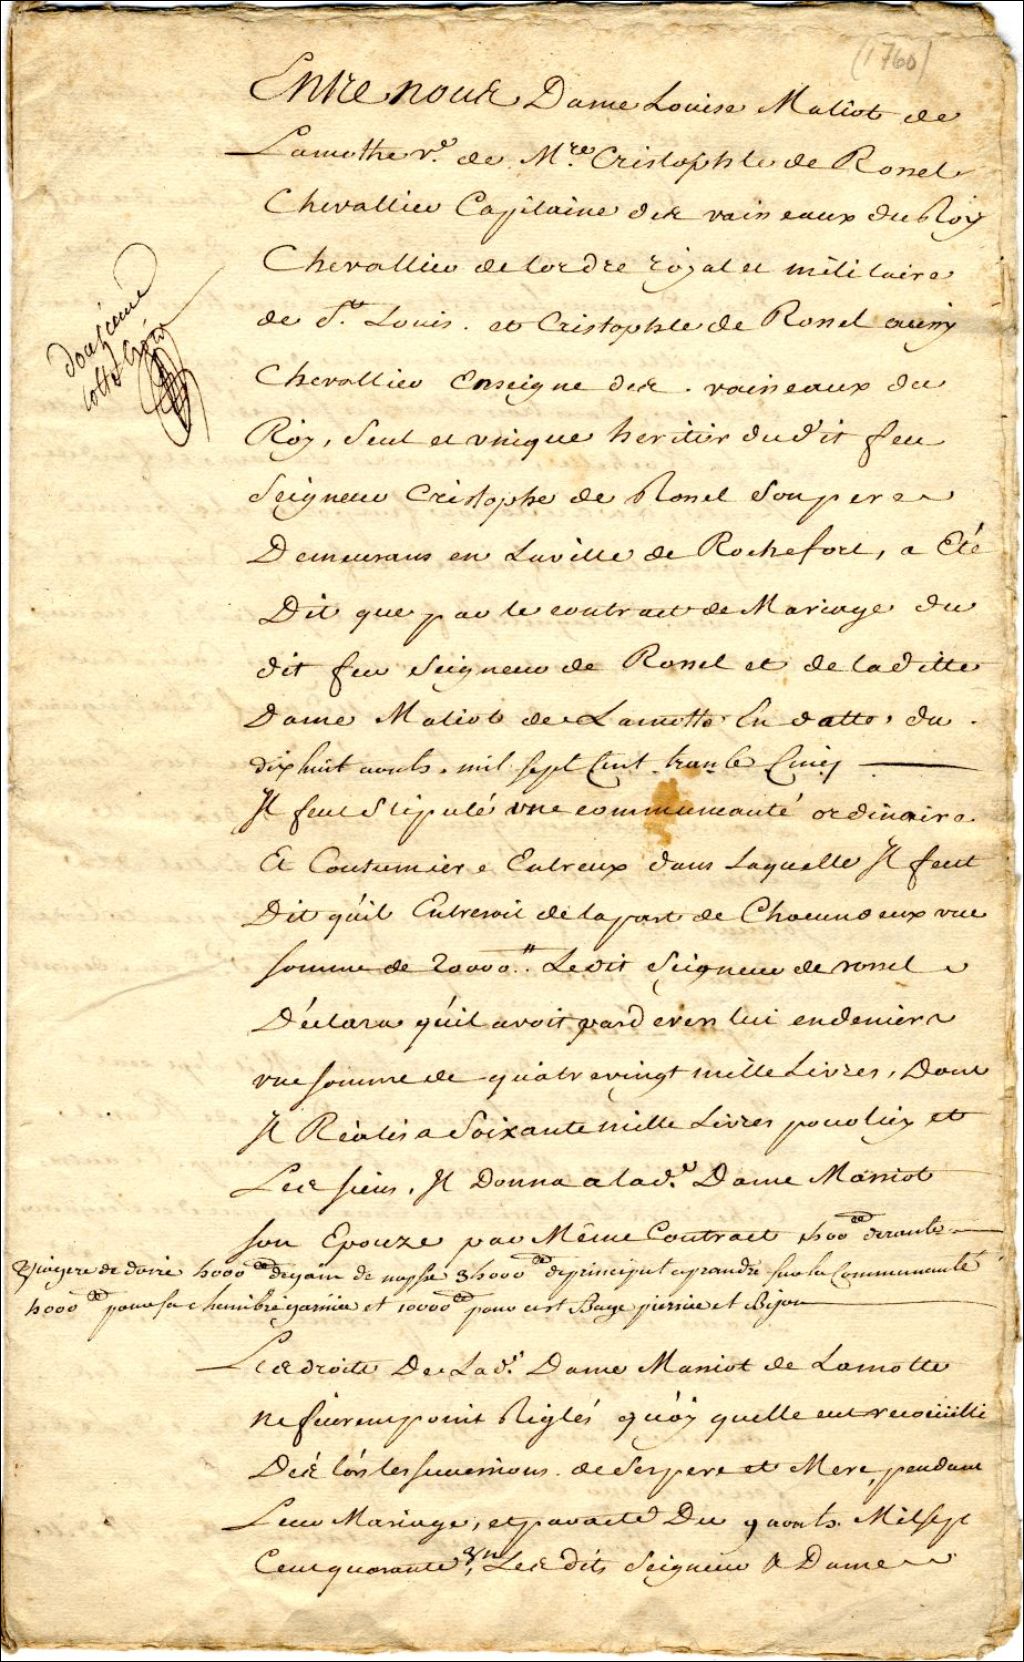 (1760)
Entre nous Dame Louise Maliot de
Lamothe v.e de M.re Cristophle de Rossel
Chevallier Capitaine des vaisseaux du Roy
Chevallier de lordre royal et militaire
de S.t Louis. et Cristophle de Rossel aussy
Chevallier Enseigne des vaisseaux du
Roy, seul et vnique heritier dudit feu
Seigneur Cristophe de Rossel Son pere
Demeurans en La ville de Rochefort, a Eté
Dit que par le contract de Mariage du
dit feu Seigneur de Rossel et de la ditte
Dame Maliot de Lamotte En datte du
dix huit aouts mil sept Cent trante Cinq
Il feut Stipulé vne communauté ordinaire
Et Coutumiere Entreux dans Laquelle Il feut
Dit qúil Entreroit de la part de Chacun deux vne
somme de 20000." Le dit Seigneur de rossel
Déclara qúil avoit pard evers lui en deniers
vne somme de quatre vingt mille Livres, Dont
Il Réalisa Soixante mille Livres pour luy et
Les siens, Il Donna a lad.e Dame Maniot
son Epouze par Même Contract 1500 de rante
viagere de doire 5000 de gain de nopsse 35000 de principut a prandre sur la Communauté
5000 pour sa chambre garnie et 10000 pour
Les droits De Lad.e Dame Maniot de Lamotte
ne feurent point Reglés qúoy quelle eut recoüilli
Dés lors les successions de Ses pere et Mere, pendant
Leur Mariage, et par acte Du 9 aouts Mil sept
Cent quarante Les dits Seigneur & Dame
douzieme
cotte